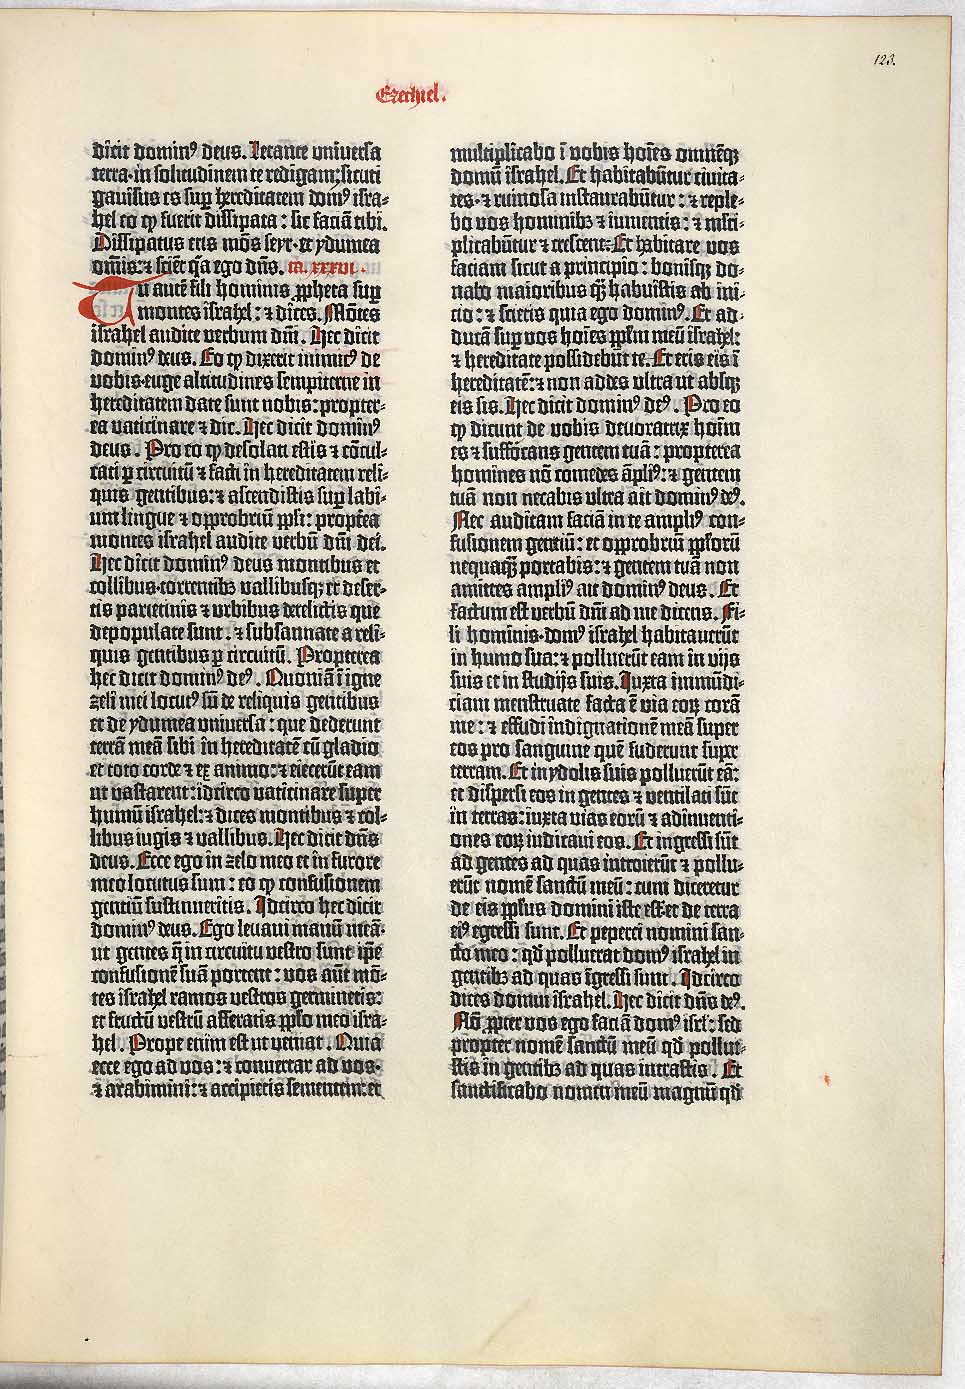 123.
Ezechiel.
dicit dominꝰ deus. Letante universa
terra·in solitudinem te redigam;sicuti
gavisus es suꝑ hereditatem domꝰ isra-
hel eo ꝙ fuerit dissipata : sic faciā tibi.
Dissipatus eris mōs seyr·et ydumea
omīs:⁊ sciēt q̄a ego dn̄s. ca. xxxvi .
Tu autē fili hominis ꝓpheta suꝑ
montes israhel: ⁊ dices. Mōtes
israhel audite verbum dn̄i. Hec dicit
dominꝰ deus. Eo ꝙ dixerit inimicꝰ de
vobis·euge altitudines sempiterne in
hereditatem date sunt nobis: propter-
ea vaticinare ⁊ dic. Hec dicit dominꝰ
deus . Pro eo ꝙ desolati estis ⁊ cōcul-
cati ꝑ circuitū ⁊ facti in hereditatem reli-
quis gentibus: ⁊ ascendistis suꝑ labi-
um lingue ⁊ opprobriū ppli: propterea
montes israhel audite verbū dn̄i dei.
Hec dicit dominꝰ deus montibus et
collibus·torrentibꝫ vallibusqꝫ et deser-
tis parietinis ⁊ urbibus derelictis que
depopulate sunt : ⁊ subsannate a reli-
quis gentibus ꝑ circuitū. Propterea
hec dicit dominꝰ deꝰ. Quoniā ī igne
zeli mei locutꝰ sū de reliquis gentibus
et de ydumea universa : que dederunt
terrā meā sibi in hereditatē cū gladio
et toto corde ⁊ ex animo: ⁊ eiecerūt eam
ut vastarent: idcirco vaticinare super
humū israhel: ⁊ dices montibus ⁊ col-
libus iugis ⁊ vallibus. Hec dicit dn̄s
deus. Ecce ego in zelo meo et in furore
meo locutus sum : eo ꝙ confusionem
gentiū sustinueritis. Idcirco hec dicit
dominꝰ deus. Ego levavi manū meā·
ut gentes q̄ in circuitu vestro sunt ip̄e
confusionē suā portent : vos aūt mō-
tes israhel ramos vestros germinetis:
et fructū vestrū afferatis pplo meo isra-
hel . Prope enim est ut veniat . Quia
ecce ego ad vos : ⁊ convertar ad vos·
⁊ arabimini: ⁊ accipietis sementem. et
multiplicabo ī vobis hoīes omnēqꝫ
domū israhel. Et habitabūtur civita-
tes· ⁊ ruinosa instaurabūtur : ⁊ reple-
bo vos hominibꝫ ⁊ iumentis: ⁊ mlti-
plicabūtur ⁊ crescent. Et habitare vos
faciam sicut a principio : bonisqꝫ do-
nabo maioribus q̄ꝫ habuistis ab ini-
tio: ⁊ scietis quia ego dominꝰ. Et ad-
ducā suꝑ vos hoīes pplm meū israhel:
⁊ hereditate possidebūt te. Et eris eis ī
hereditatē: ⁊ non addes ultra ut absqꝫ
eis sis. Hec dicit dominꝰ deꝰ . Pro eo
ꝙ dicunt de vobis devoratrix hoīm
es ⁊ suffocans gentem tuā : propterea
homines nō comedes āpliꝰ: ⁊ gentem
tuā non necabis ultra ait dominꝰ deꝰ.
Nec auditam faciā in te ampliꝰ con-
fusionem gentiū: et opprobriū pplorū
nequaq̄ꝫ portabis: ⁊ gentem tuā non
amittes ampliꝰ ait dominꝰ deus . Et
factum est verbū dn̄i ad me dicens. Fi-
li hominis·domꝰ israhel habitaverūt
in humo sua: ⁊ polluerūt eam in vijs
suis et in studijs suis. Iuxta immūdi-
ciam menstruate facta ē via eoꝝ corā
me: ⁊ effudi indignationē meā super
eos pro sanguine quē fuderunt super
terram. Et in ydolis suis polluerūt eā:
et dispersi eos in gentes ⁊ ventilati sūt
in terras: iuxta vias eorū ⁊ adinventi-
ones eoꝝ iudicavi eos. Et ingressi sūt
ad gentes ad quas introierūt ⁊ pollu-
erūt nomē sanctū meū : cum diceretur
de eis pplus domini iste est·et de terra
eiꝰ egressi sunt. Et peperci nomini san-
cto meo : qd̄ polluerat domꝰ israhel in
gentibꝫ ad quas īgressi sunt. Idcirco
dices domui israhel. Hec dicit dn̄s deꝰ.
Nō ꝓpter vos ego faciā domꝰ isrl̄: sed
propter nomē sanctū meū qd̄ pollui-
stis in gentibꝫ ad quas intrastis . Et
sanctificabo nomen meū magnū qd̄